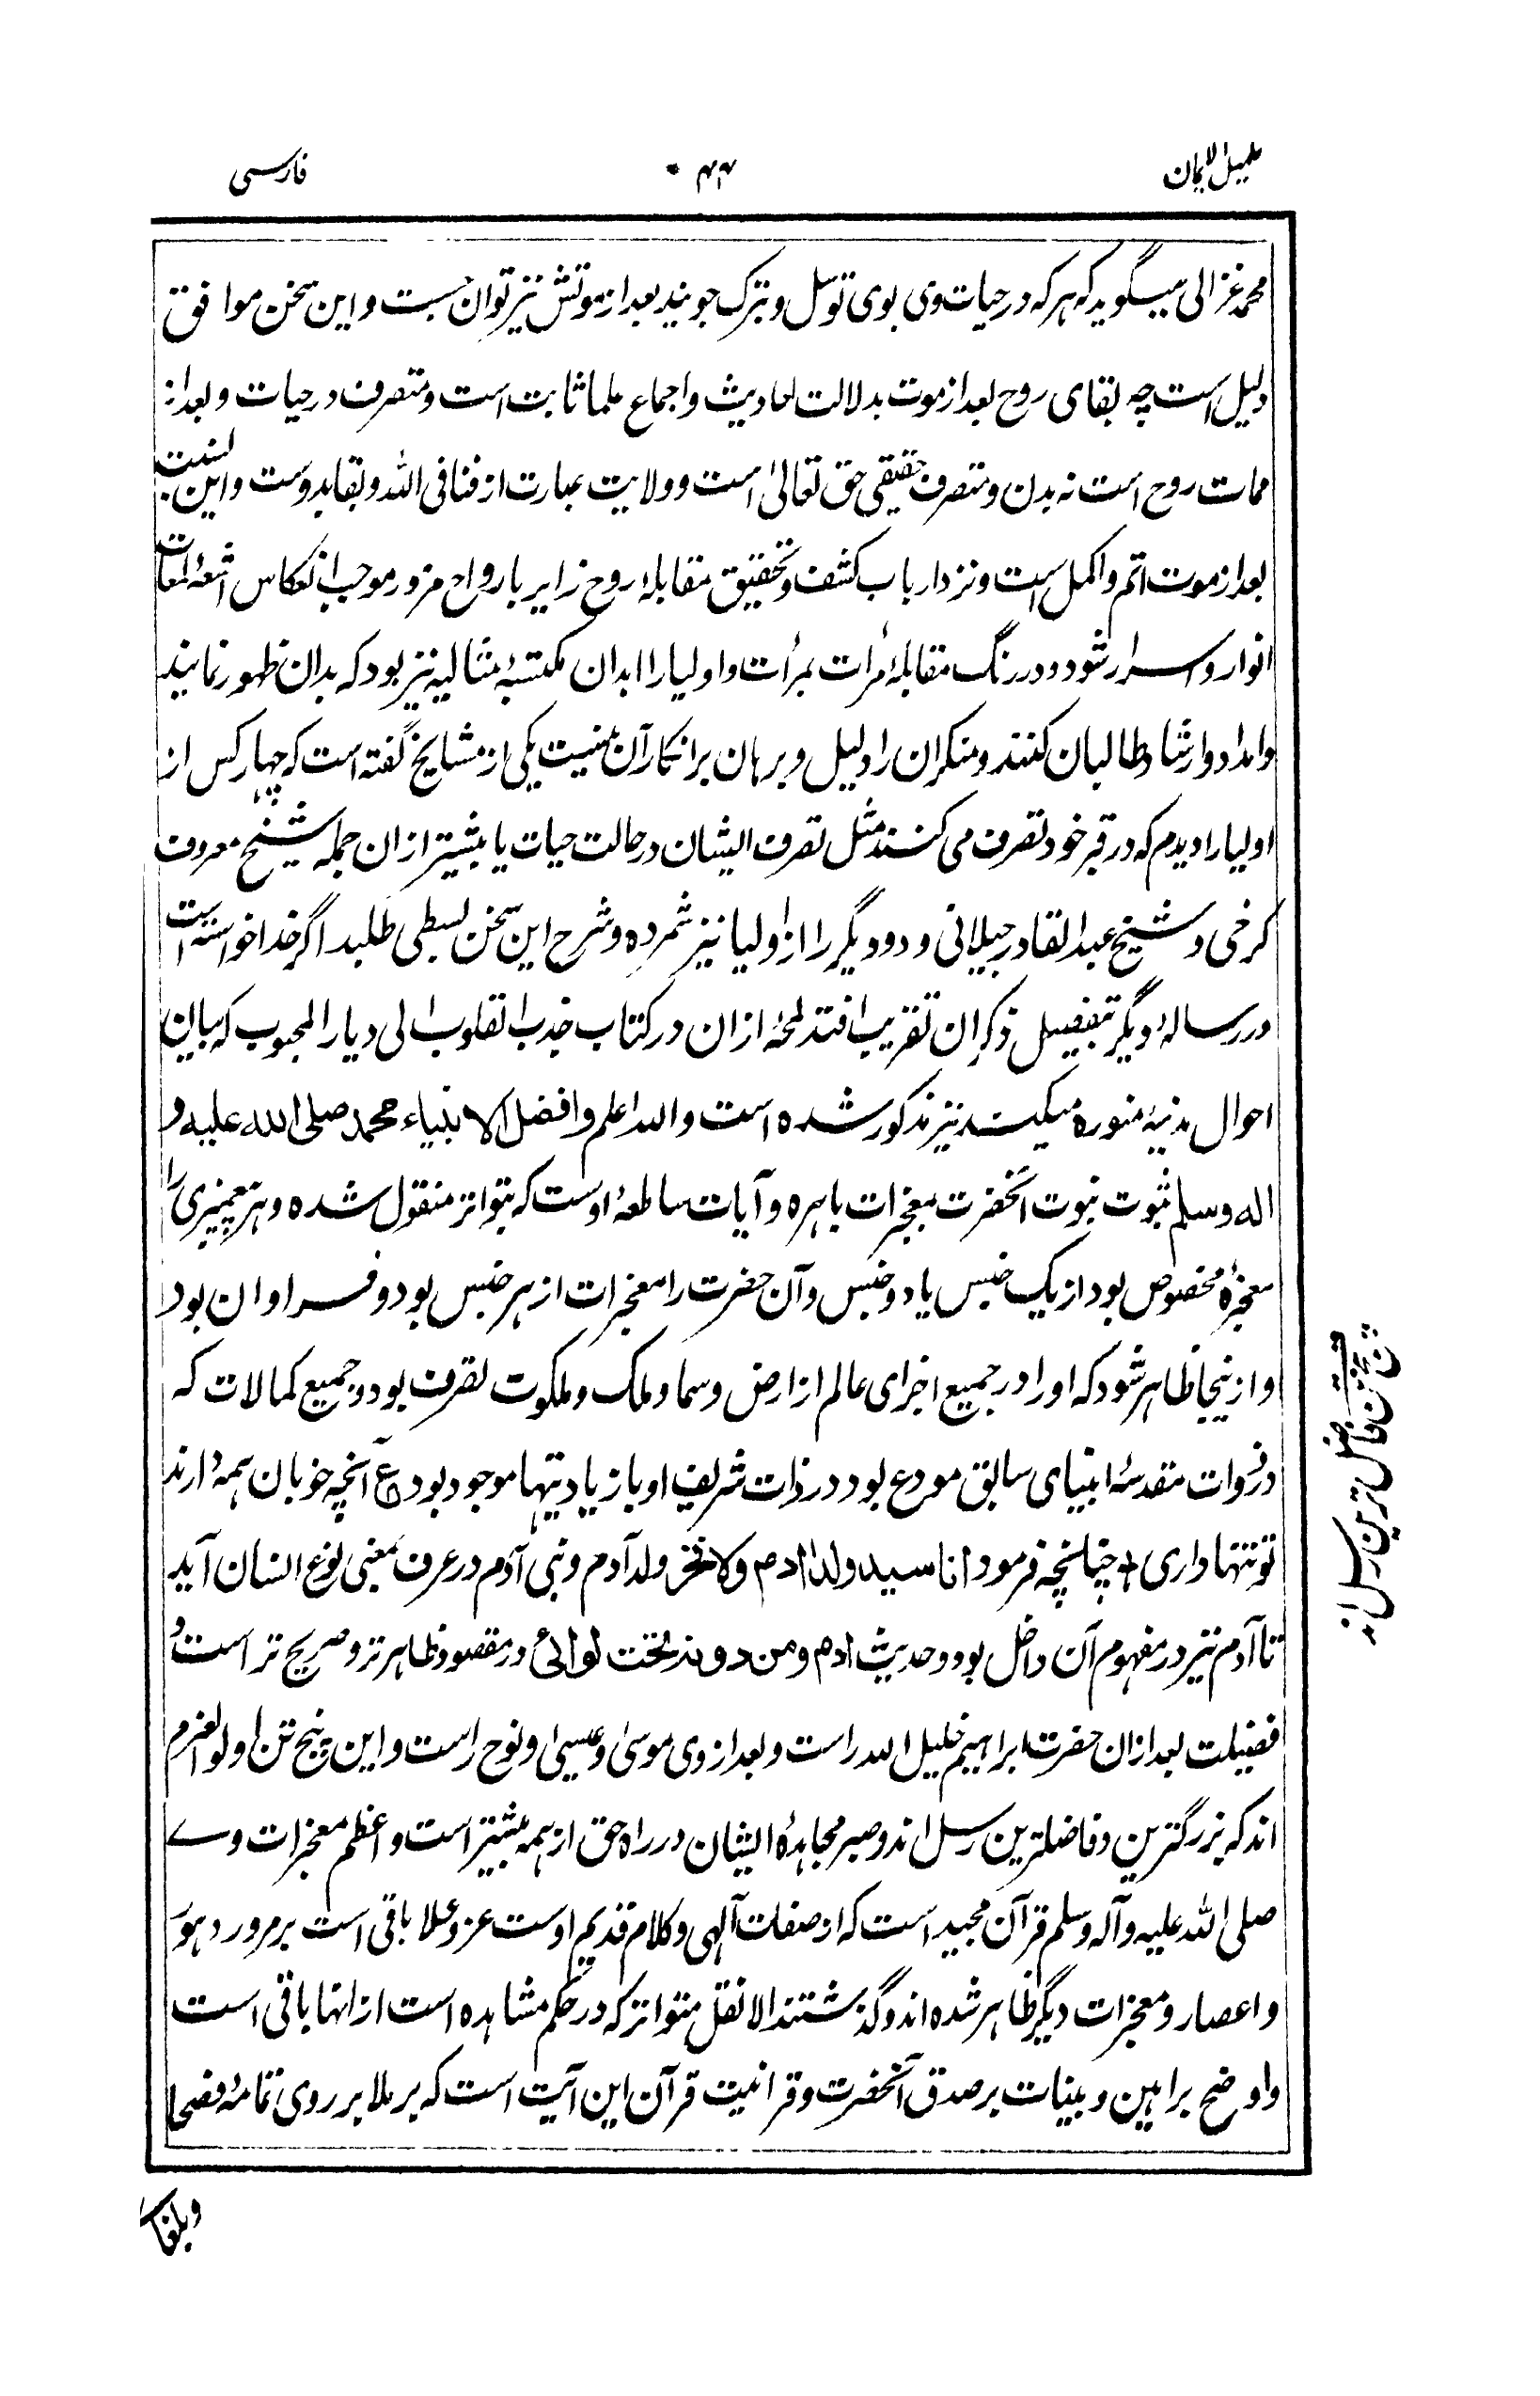 تکمیل الایمان ۴۴ فارسی
محمد غزالی میگوید که هر که در حیات وی بوی توسل و تبرک جویند بعد از موتش نیز توان جست و این سخن موافق
دلیل است چه بقای روح بعد از موت بدلالت احادیث و اجماع علما ثابت است و متصرف در حیات و بعد از
ممات روح است نه بدن و متصرف حقیقی حق تعالیٰ است و ولایت عبارت از فنا فی الله و بقا بدوست و این نسبت
بعد از موت اتم و اکمل است و نزد ارباب کشف و تحقیق مقابلهٔ روح زایر با رواح مزور موجب انعکاس اشعهٔ لمعات
انوار و اسرار شود و در رنگ مقابلهٔ مرأت بمرأت و اولیا را ابدان مکتسبهٔ مثالیه نیز بود که بدان ظهور نمایند
و امداد و ارشاد طالبان کنند و منکران را دلیل و برهان بر انکار آن نیست یکی از مشایخ گفته است که چهار کس از
اولیا را دیدم که در قبر خود تصرف می کنند مثل تصرف ایشان در حالت حیات یا بیشتر ازان جمله شیخ معروف
کرخی و شیخ عبد القادر جیلانی و دو دیگر را از اولیا نیز شمرده و شرح این سخن بسطی طلبد اگر خدا خواسته است
در رسالهٔ دیگر بتفصیل ذکر ان تقریب افتد لمحهٔ ازان در کتاب جذب القلوب الی دیار المحبوب که بیان
احوال مدینهٔ منوره میکند نیز مذکور شده است و الله اعلم و افضل الانبیاء محمد صلی الله علیه و
اله وسلم ثبوت نبوت آنحضرت بمعجزات باهره و آیات ساطعهٔ اوست که بتواتر منقول شده و هر پیغمبری را
معجزهٔ مخصوص بود از یک جنس یا دو جنس و آن حضرت را معجزات از هر جنس بود و فراوان بود
و ازینجا ظاهر شود که او را در جمیع اجزای عالم از ارض و سما و ملک و ملکوت تصرف بود و جمیع کمالات که
در ذوات مقدسهٔ انبیای سابق مودع بود در ذات شریف او با زیادتیها موجود بود ع آنچه خوبان همه دارند
تو تنها داری + چنانچه فرمود انا سید ولد ادم ولا فخر ولد آدم و بنی آدم در عرف بمعنی نوع انسان آید
تا آدم نیز در مفهوم آن داخل بود و حدیث ادم ومن دونه تحت لوائی در مقصود ظاهر تر و صریح تر است و
فضیلت بعد ازان حضرت ابراهیم خلیل الله راست و بعد از وی موسیٰ و عیسیٰ و نوح راست و این پنج تن اولوالعزم
اند که بزرگترین و فاضلترین رسل اند و صبر مجاهدهٔ ایشان در راه حق از همه بیشتر است و اعظم معجزات وے
صلی الله علیه و آله وسلم قرآن مجید است که از صفات آلهی و کلام قدیم اوست عز و علا باقی است بر مرور دهور
و اعصار و معجزات دیگر ظاهر شده اند و گذشتند الا نقل متواتر که در حکم مشاهده است از انها باقی است
و اوضح براهین و بینات بر صدق آنحضرت و قرانیت قرآن این آیت است که بر ملا بر روی تمامهٔ فصحا
پنج تن فاضل ترین رسل اند
و بلغا